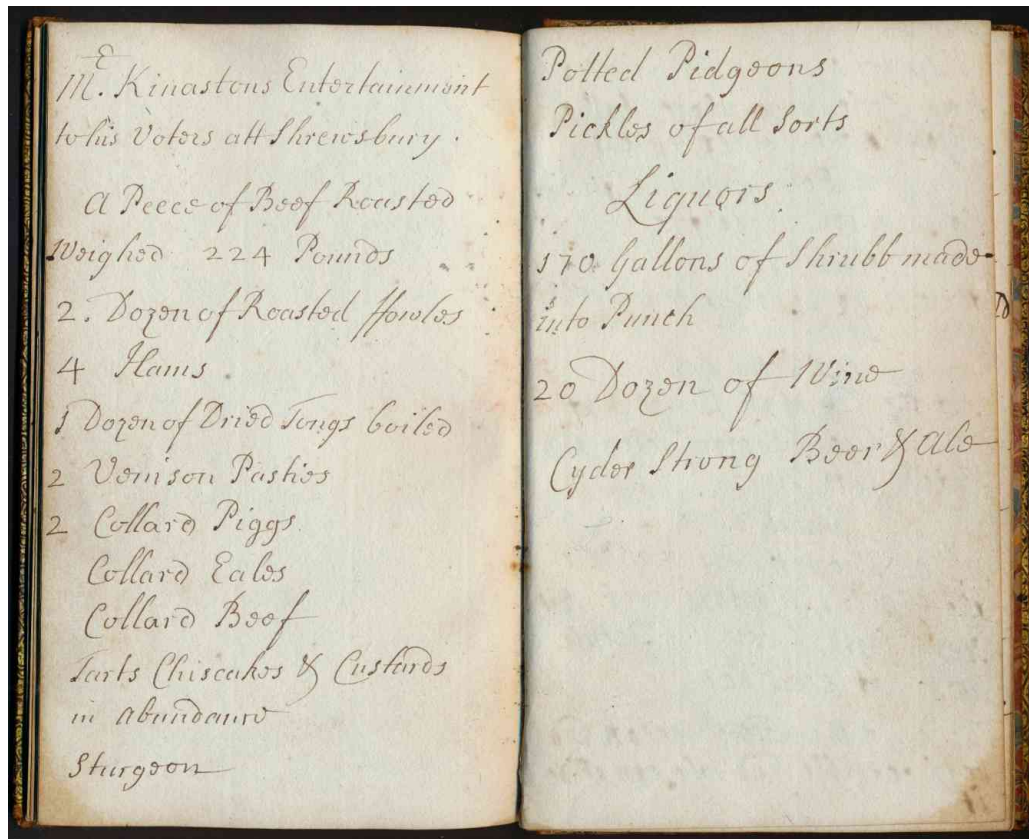 Mr. Kinastons Entertainment
to his Voters att Shrewsbury.
A Peece of Beef Roasted
Weighed 224 Pounds
2. Dozen of Roasted ffowles
4 Hams.
1 Dozen of Dried Tongs boiled
2 Venison Pasties
2 Collard Piggs.
Collard Eales
Collard Beef
Tarts Chiscakes & Custards
in abundance
Sturgeon
Potted Pidgeons
Pickles of all Sorts
Liquors
170 Gallons of Shrubb made
into Punch
20 Dozen of Wine
Cyder Strong Beer & Ale